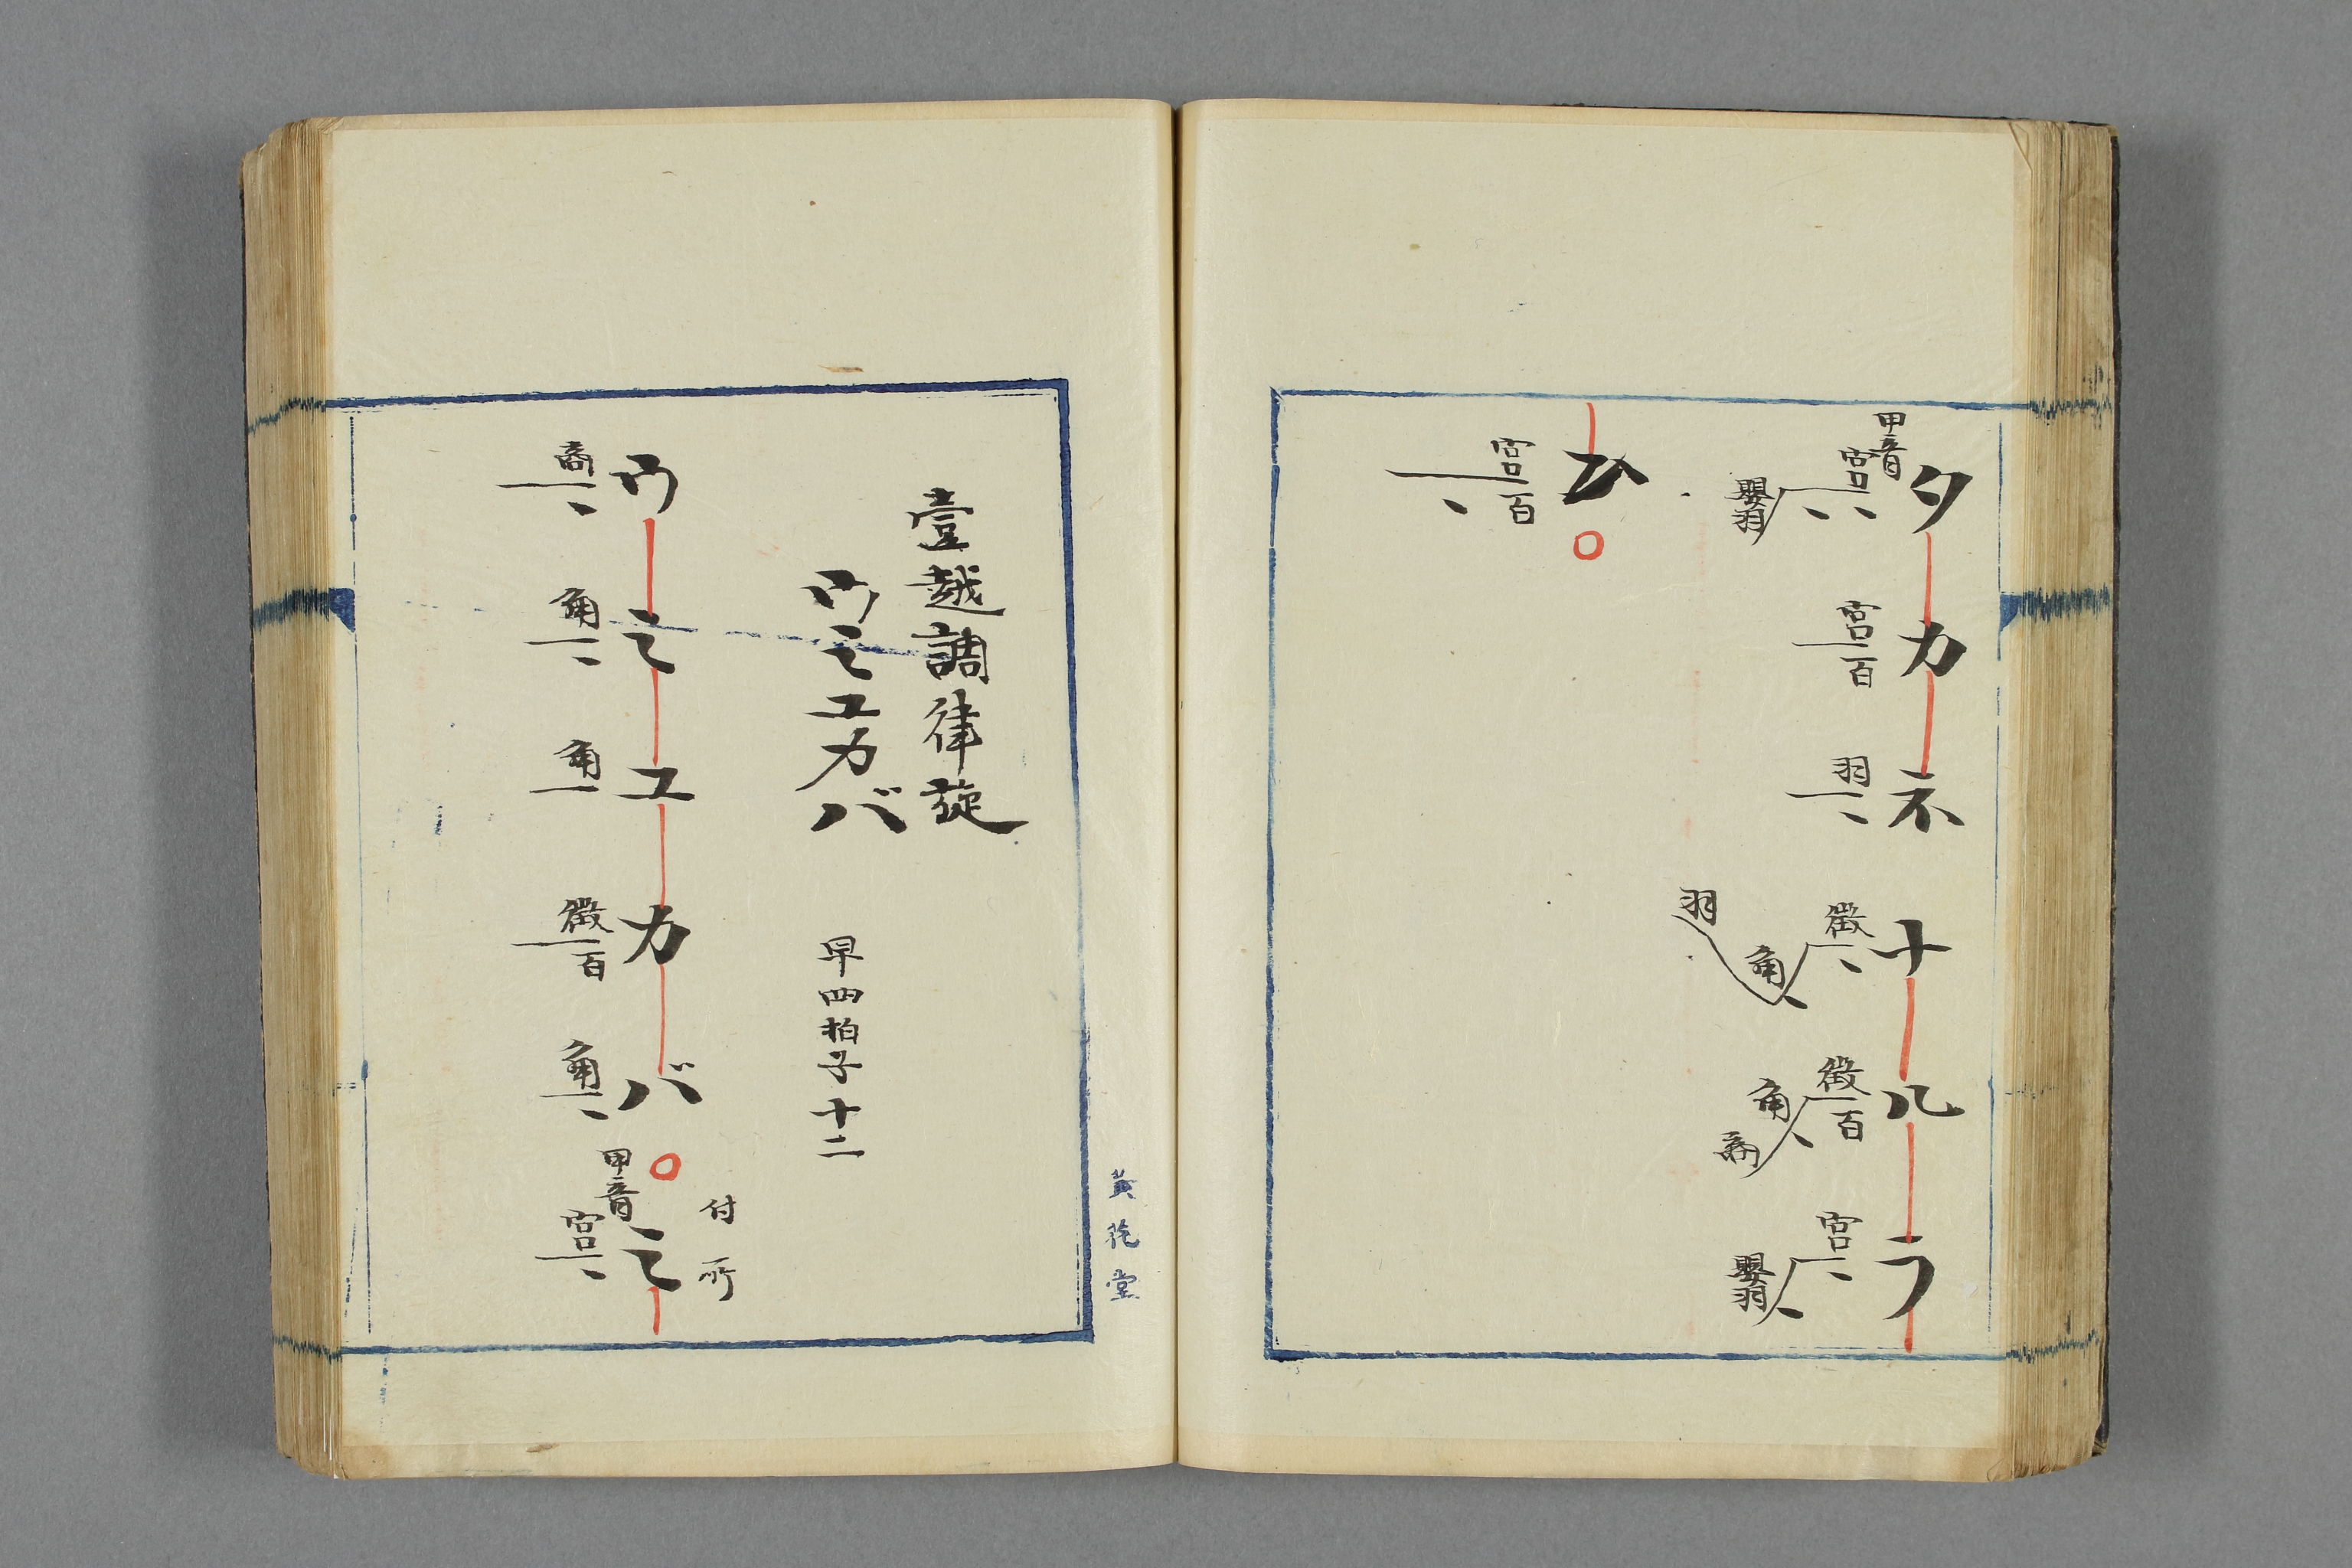 タカネナルラ
甲音
宮 宮 百 羽 徴 徴 百 宮
嬰羽 角 角 嬰羽
羽 商
宮 百
黄花堂
壹越調律旋
ウミユカバ 早四拍子十二
付所
ウミユカバ ミ
甲音
商 角 角 徴 百 角 宮